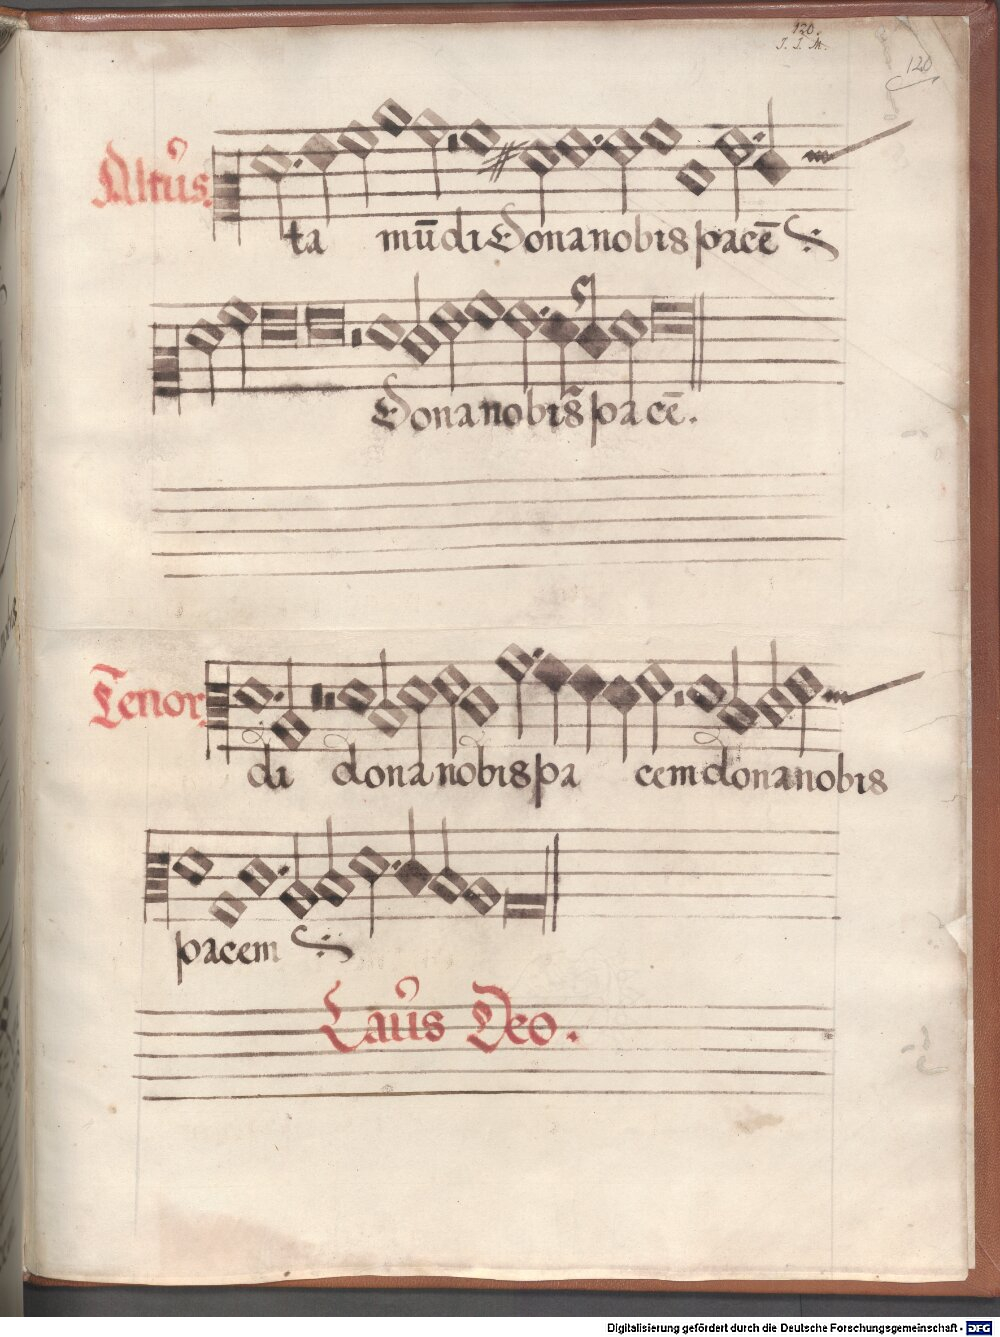 120.
J. J. M.
120
Altus.
ta mūdi Dona nobis pacē
Dona nobis pa cē.
Tenor.
di dona nobis pa cem dona nobis
pacem
Laus Deo.
Digitalisierung gefördert durch die Deutsche Forschungsgemeinschaft - DFG